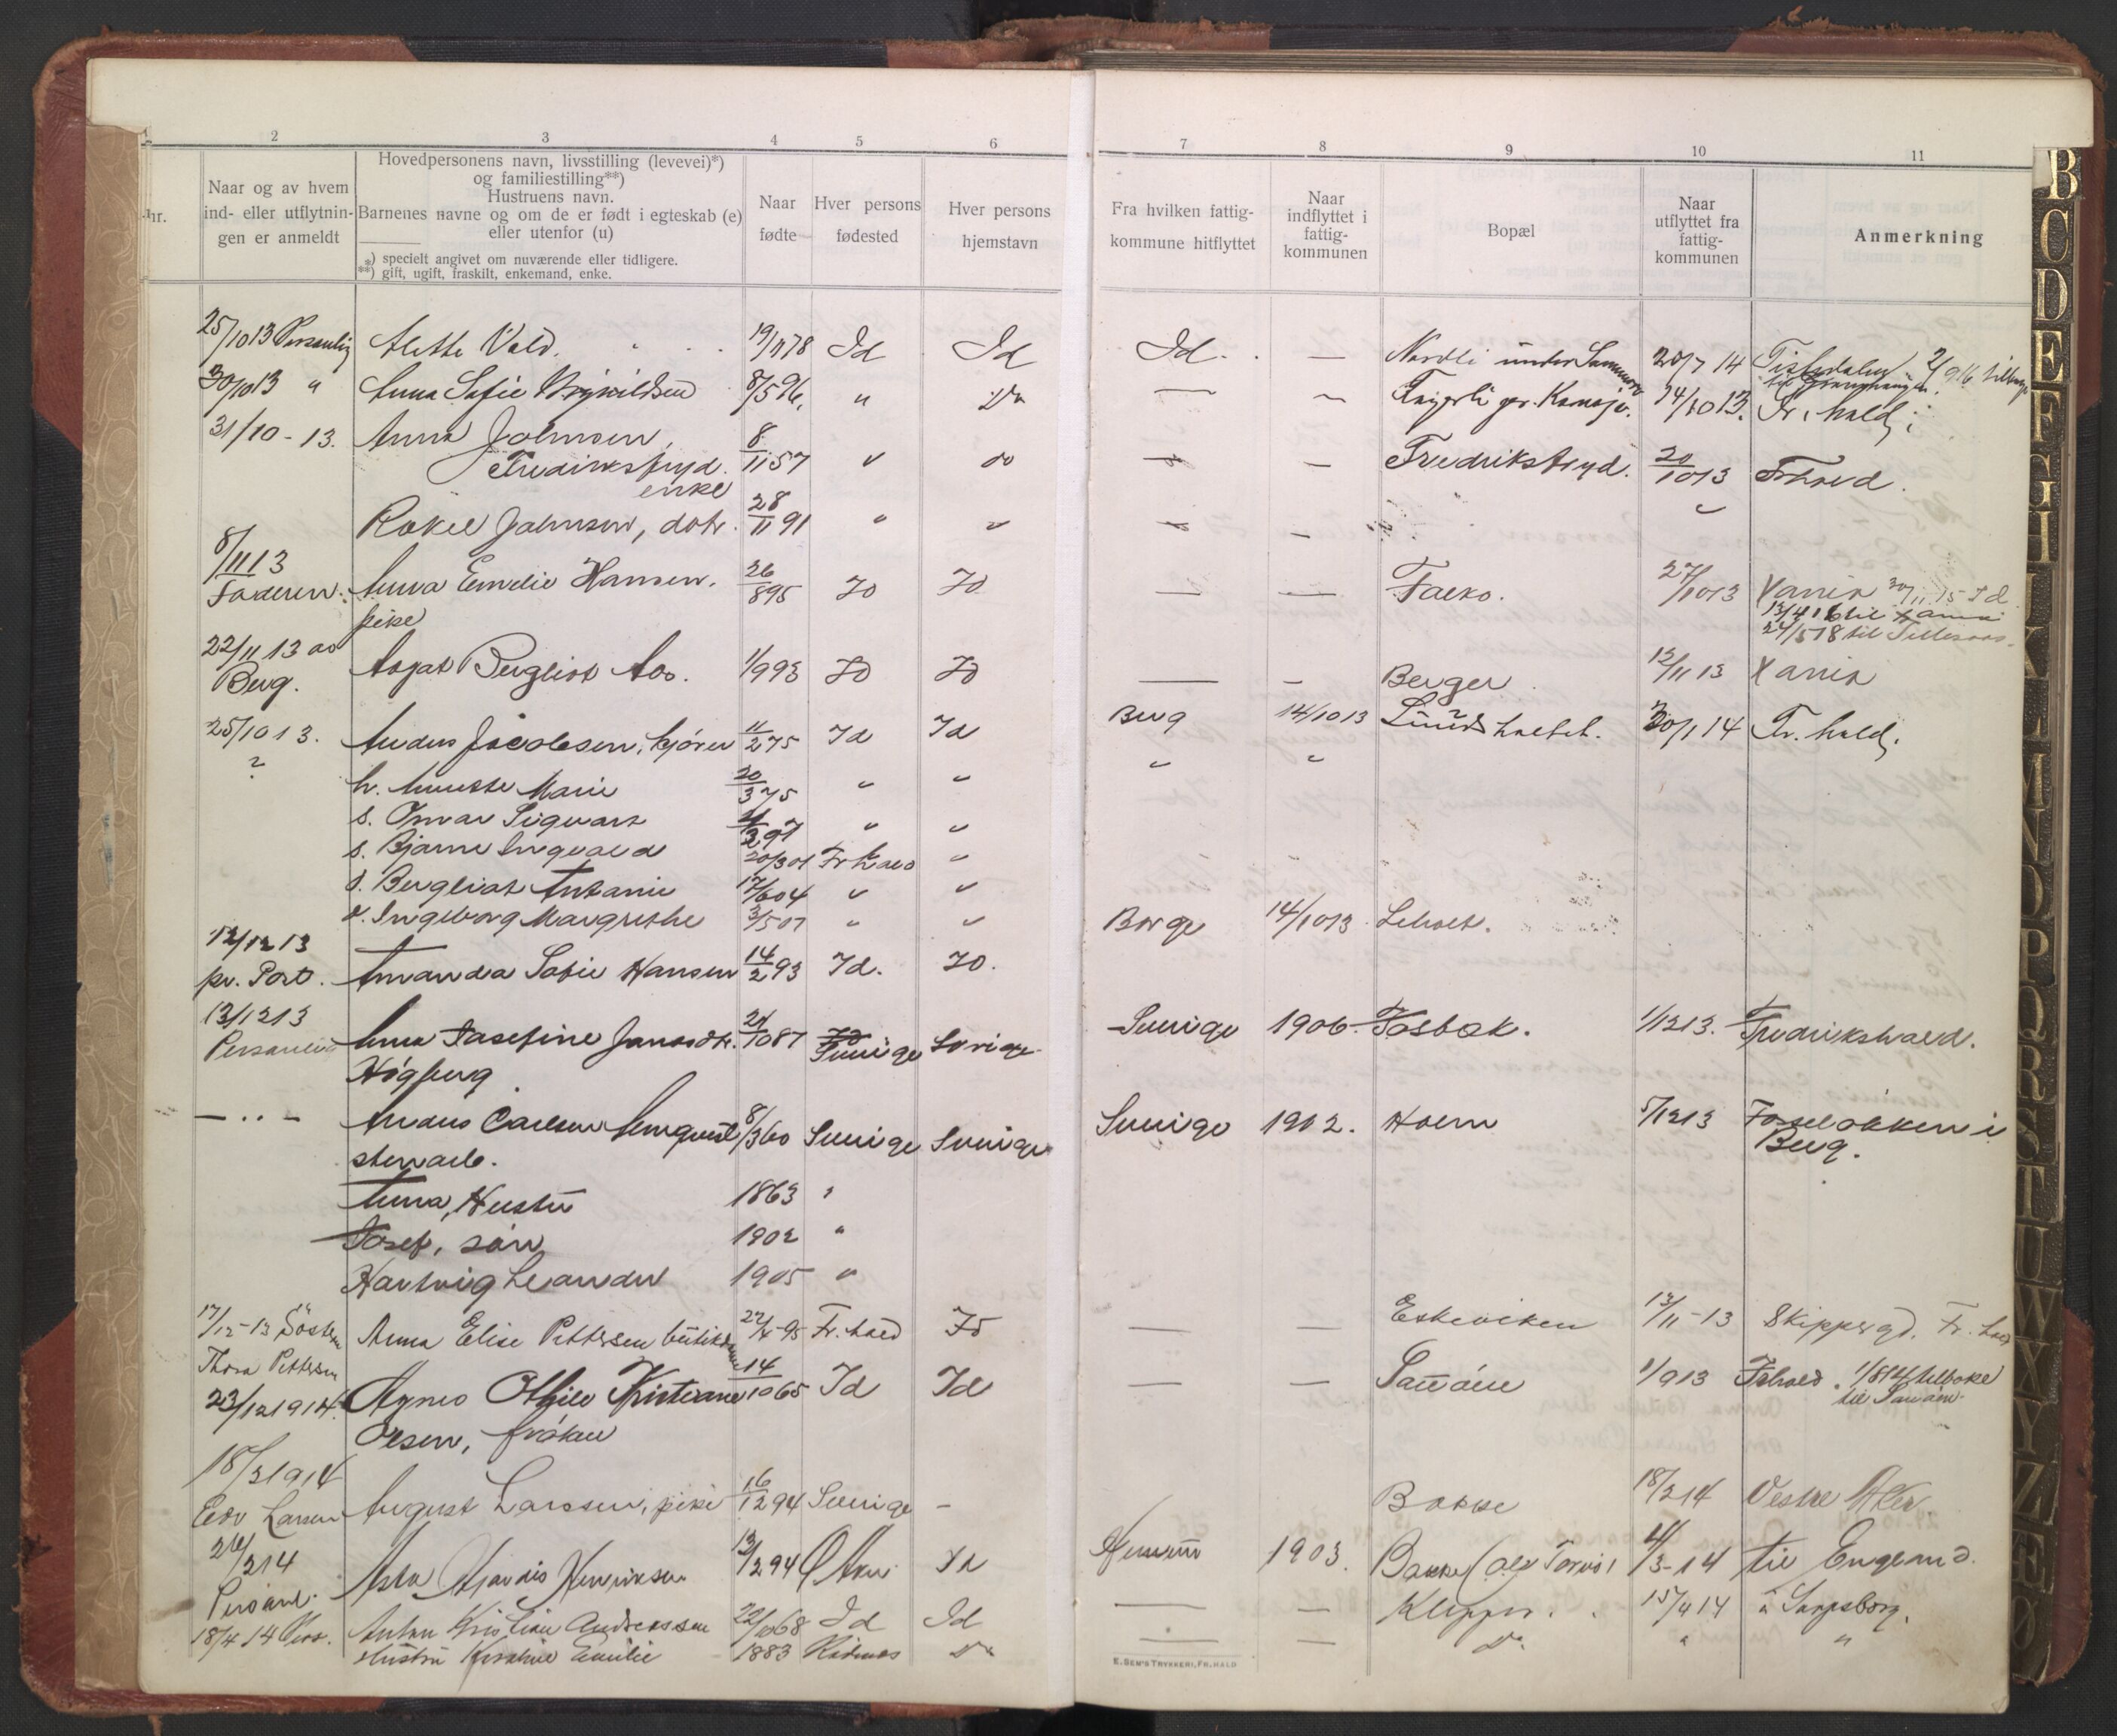 2 3 4 5 6 7 8 9 10 11
nr.
Naar og av hvem
ind- eller utflytnin-
gen er anmeldt
Hovedpersonens navn, livsstilling (levevei)*)
og familiestilling**)
Hustruens navn.
Barnenes navne og om de er født i egteskab (e)
eller utenfor (u)
*) specielt angivet om nuværende eller tidligere.
**) gift, ugift, fraskilt, enkemand, enke.
Naar
fødte
Hver persons
fødested
Hver persons
hjemstavn
Fra hvilken fattig-
kommune hitflyttet
Naar
indflyttet i
fattig-
kommunen
Bopæl
Naar
utflyttet fra
fattig-
kommunen
Anmerkning
25/10 13 Personlig Alette Vold. 19/11 78 Id Id Id. — Nordli under 20/7 14 Tistedalen 2/9 16 tilbage
30/10 13 " Anna Sofie 8/5 96. " Do — 14/10 13. Fr.hald
31/10 - 13. Anna Johnsen, 8/11 57 " do — — Fredriksfryd. 20/10 13 Frhald.
Fredriksfryd.
enke
Rakel Johnsen, dotr. 28/11 91 " " — — "
8/11 13
Faderen. Anna Emelie Hansen. 26/8 95 Id Id — — Falko. 27/10 13 Vania 30/11 15 Id
pike 13/4 16 til
24/5 18 til
22/11 13 ao
Berg. Bergliot Aos. 1/9 93 Id Id — — Berger 12/11 13 Vania
25/10 13. Anders Jacobsen, kjører 11/2 75 Id Id Berg 14/10 13 30/1 14 Fr.hald.
h. Marie 20/3 75 " " " "
s. Omar Sigvart 4/2 97 " "
s. Bjarne Ingvald 20/3 01 Fr.hald "
d. Bergliot Antonie 17/6 04 " "
d. Ingeborg Margrethe 3/5 07 " "
12/12 13
pr. Post. Amanda Sofie Hansen 14/2 93 Id. Id. Borge 14/10 13 Liholt.
13/12 13
Personlig Anna Josefine Jansdtr. 24/10 87 Id Sverige Sverige Sverige 1906. Fosbæk. 1/12 13. Fredrikshald.
Högberg
— " — Anders Carlsen 8/3 60 Sverige Sverige Sverige 1902. Holm 5/12 13 i
stenarb. Berg.
Anna, Hustru 1863 "
Josef, sön 1902 "
Hartvig Leander 1905 "
17/12-13 Söster
Thora Pettersen Anna Elise Pettersen 22/4-95 Fr.hald Id — — Eskeviken 13/11-13 Skippergd. Fr.hald
23/12 1914. Agnes Othile Kristiane 14/10 65 Id Id — — Sauöen 1/9 13 Frhald. 1/8 14 tilbake
til Sauöen.
Olsen, fröken
18/2 1914
Edv Larsen August Larssen, pike 16/12 94 Sverige — Bakke 18/2 14 Vestre Aker
24/2 14
Personl. Asta Hjørdis Henriksen 13/2 94 Ø Aker Id 1903. Bakke 4/3-14 til England.
18/4 14 Pers. Anton Kristian Andreassen 22/10 68 Id Id — — Klepper. 15/4 14 " Sarpsborg.
Hustru Emilie 1883 Do — — Do " "
E. SEM'S TRYKKERI, FR.HALD
B C D E F G H I K L M N O P Q R S T U V W X Y Z Æ Ø